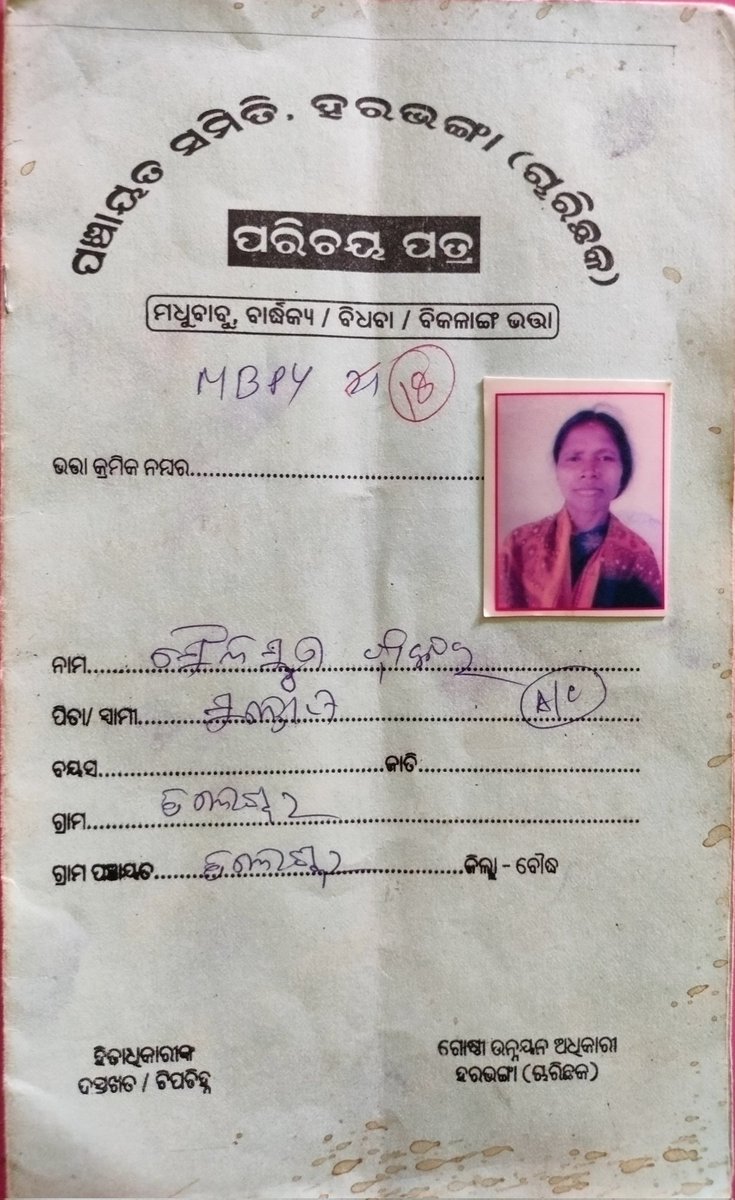 ପଞ୍ଚାୟତ ସମିତି, ହରଭଙ୍ଗା (ଚାରିଛକ)
ପରିଚୟ ପତ୍ର
ମଧୁବାବୁ, ବାର୍ଦ୍ଧକ୍ୟ / ବିଧବା / ବିକଳାଙ୍ଗ ଭତ୍ତା
MBPY
ଭତ୍ତା କ୍ରମିକ ନମ୍ବର
ନାମ
ପିତା/ ସ୍ଵାମୀ
ବୟସ ଜାତି
ଗ୍ରାମ
ଗ୍ରାମ ପଞ୍ଚାୟତ ଜିଲ୍ଲା - ବୌଦ୍ଧ
ହିତାଧିକାରୀଙ୍କ
ଦସ୍ତଖତ / ଟିପଚିହ୍ନ
ଗୋଷ୍ଠୀ ଉନ୍ନୟନ ଅଧିକାରୀ
ହରଭଙ୍ଗା (ଚାରିଛକ)